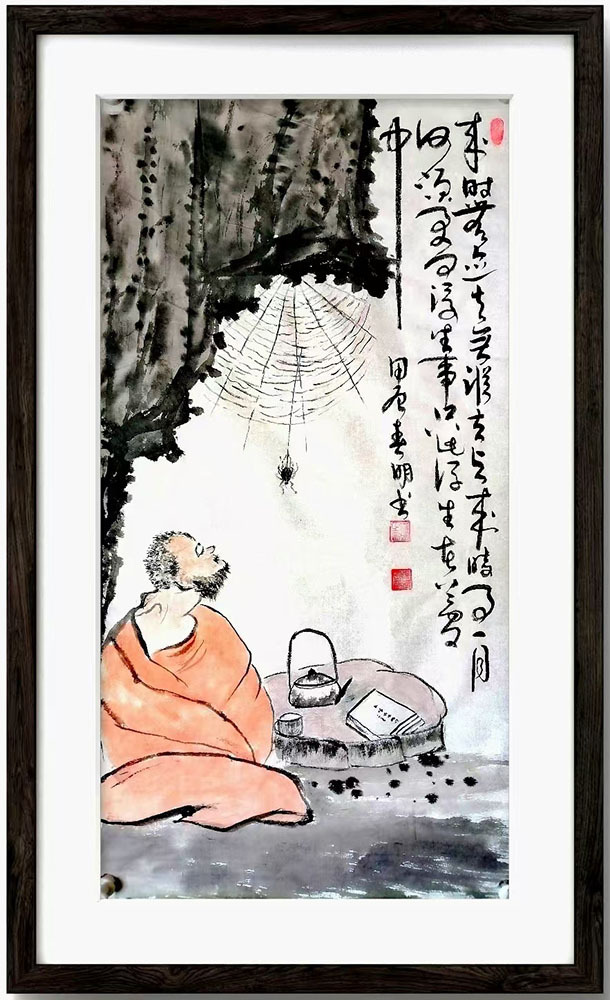 来时無迹去無踪去与来時事一同
何须更问浮生事只此浮生在梦
中
田原春明书